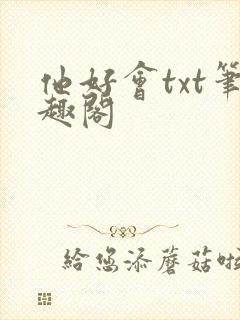 他好會txt筆
趣閣
给您添蘑菇啦